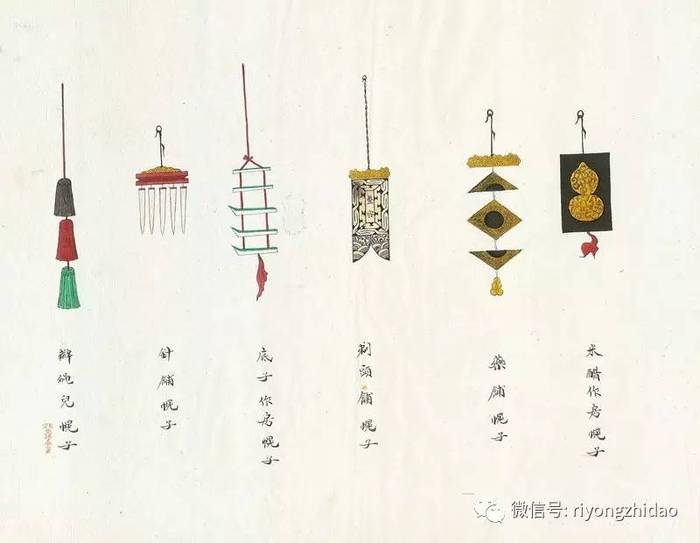 米醋作房幌子
藥舖幌子
剃頭舖幌子
底子作房幌子
針舖幌子
辮繩兒幌子
微信号: riyongzhidao